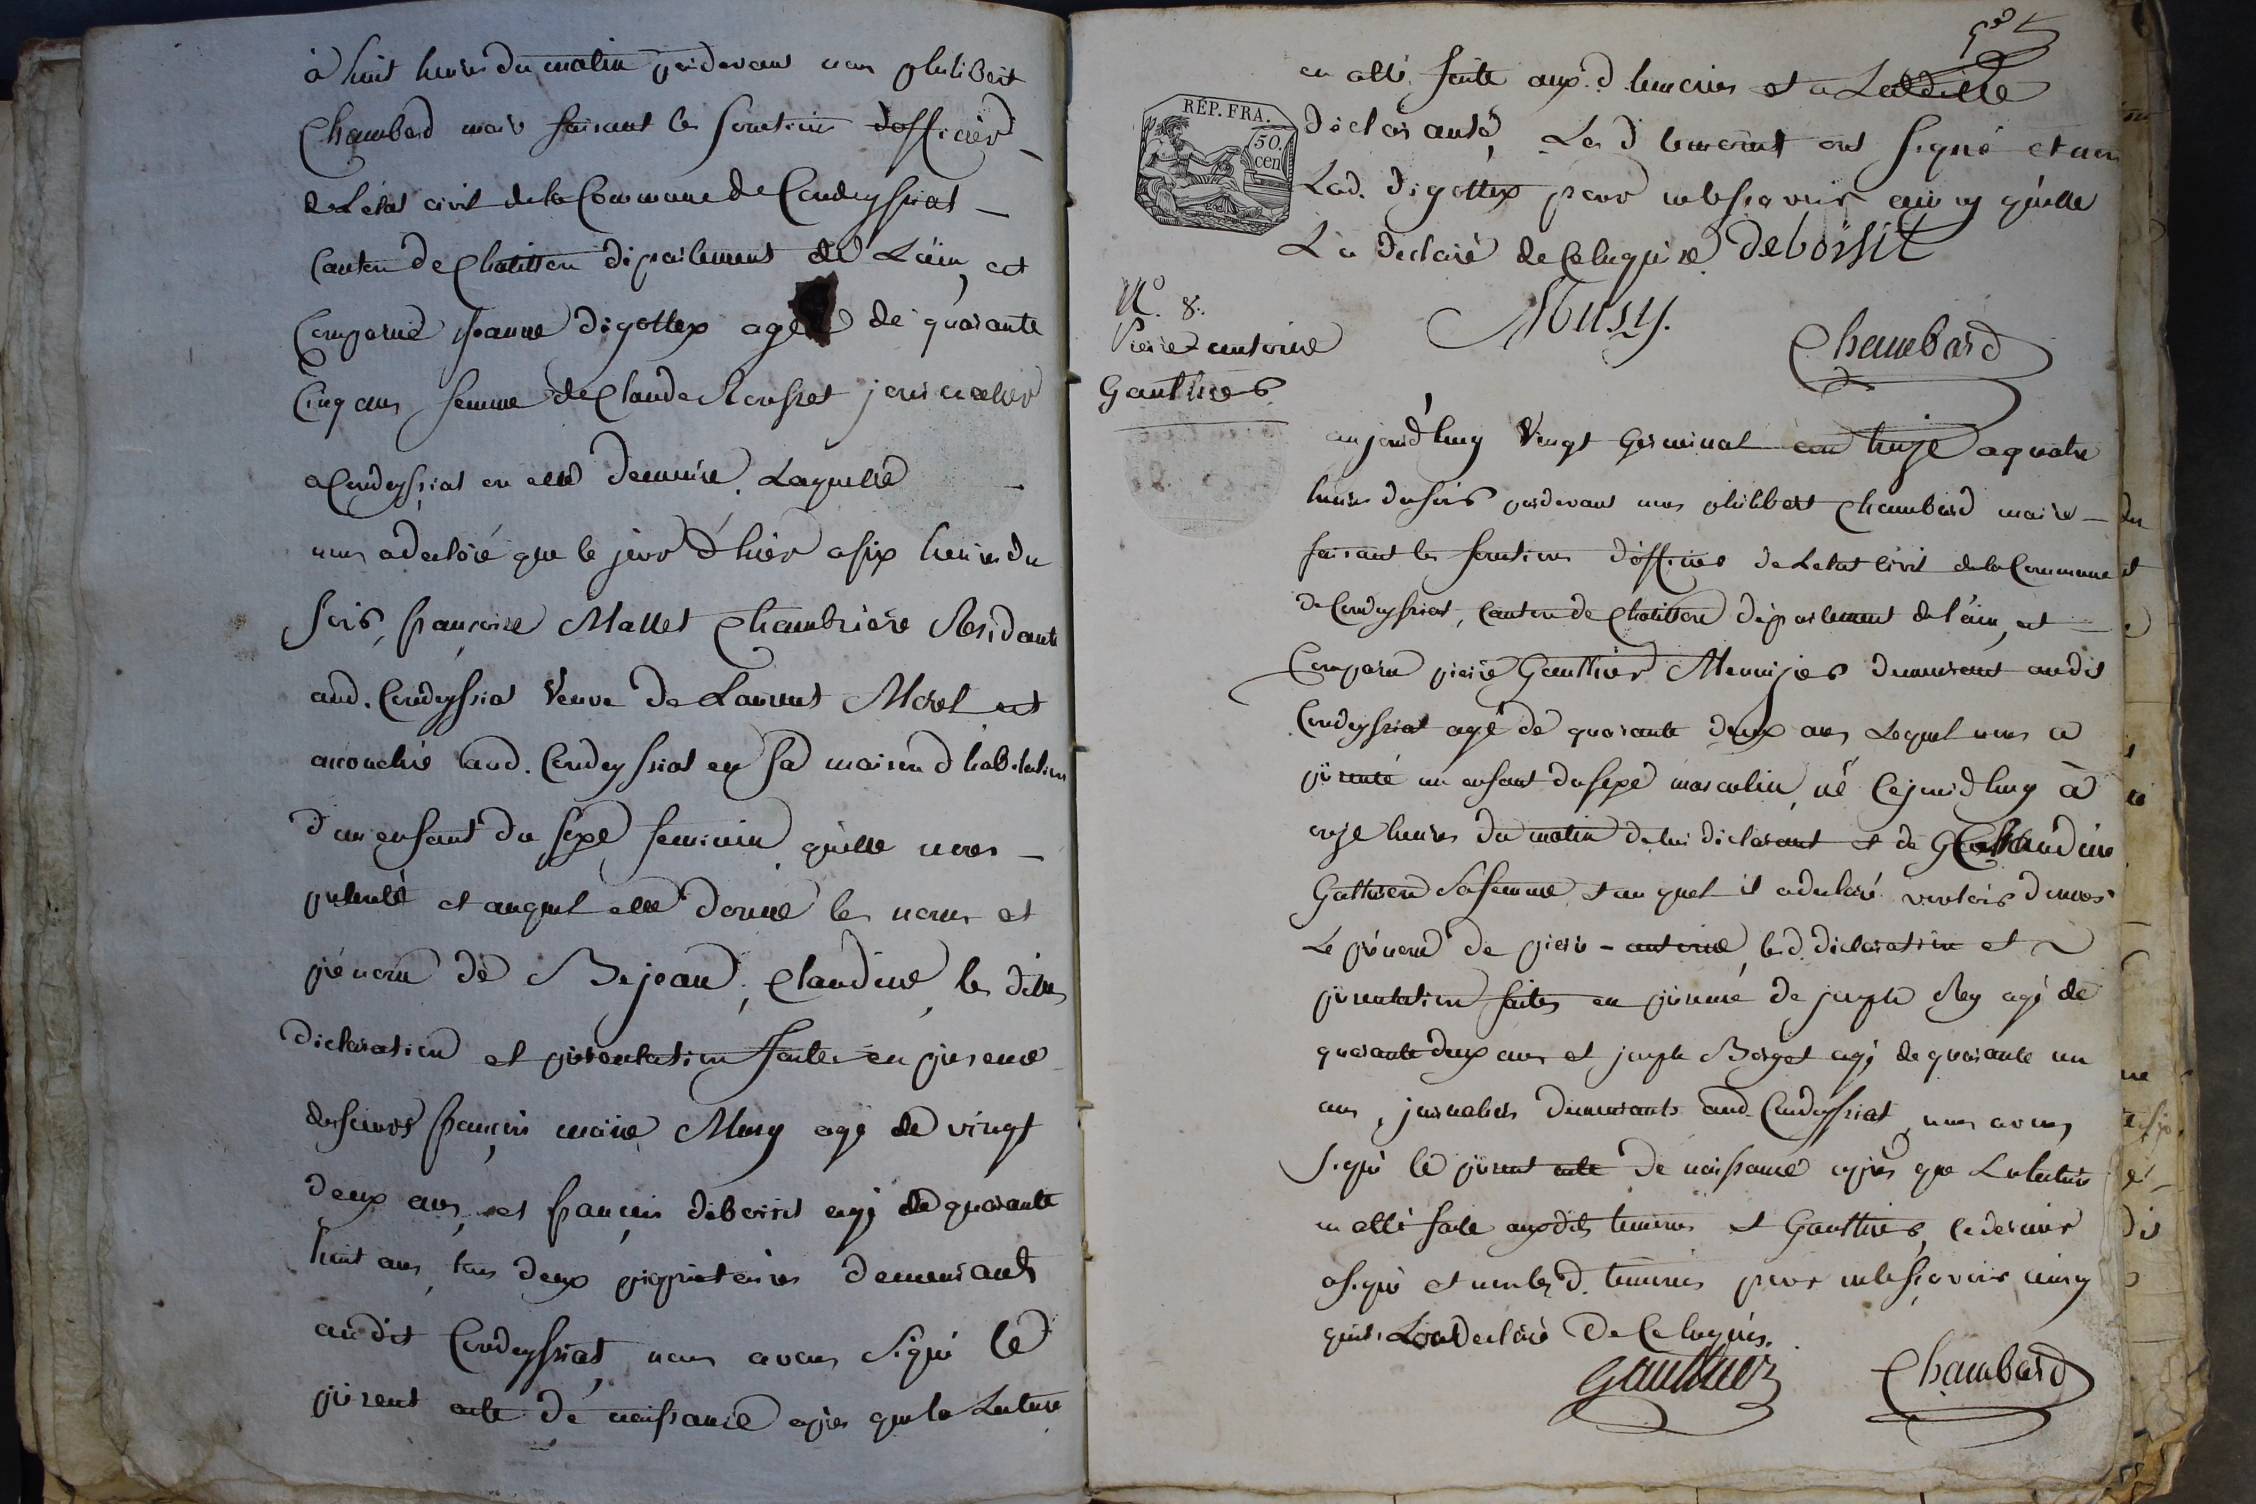 à huit heures du matin pardevant nous philibert
Chambard maire faisant les fonctions d'officier
de L'état civil de la Commune de Condeyssiat
Canton de Chatillon département de L'ain, est
Comparue jeanne digottex agée de quarante
Cinq ans femme de Claude Rousset journalier
a Condeyssiat ou elle demeure, Laquelle
nous a declaré que le jour d'hier a six heures du
soir, françoise Mallet Chambriere Residante
aud. Condeyssiat Veuve de Laurent Morel est
accouchée aud. Condeyssiat en sa maison d'habitation
d'un enfant du sexe feminin qu'elle nous
presenté et auquel elle donné les noms et
prénom de Bejean, Claudine, les dites
déclaration et présentation faites en présence
des sieurs françois marie Musy agé de vingt
deux ans, et françois deboissit agé de quarante
huit ans, tous deux propriétaires demeurants
audit Condeyssiat, nous avons signé le
présent acte de naissance après que la Lecture
en a été faite auxd. temoins et a Ladite
déclarante, Les d. temoins ont signé et non
Lad. digottex pour ne le sçavoir ainsy qu'elle
L'a declaré de Ce enquise. deboissit
Musy.
Chambard
RÉP. FRA.
50.
cen
N.° 8.
Pierre antoine
Gauthier
aujourd'huy Vingt Germinal an treize a quatre
heures du soir pardevant nous philibert Chambard maire
faisant les fonctions d'officier de L'etat civil de la Commune
de Condeyssiat, Canton de Chatillon département de l'ain, est
Comparu pierre Gauthier Meunier demeurant audit
Condeyssiat agé de quarante deux ans, Lequel nous a
présenté un enfant du sexe masculin, né Cejourd'huy à
onze heures du matin de lui déclarant et de Claudine
Sa femme, et au quel il a declaré vouloir donner
Le prénom de pierre-antoine, lesd. déclaration et
présentation faites en présence de joseph Rey agé de
quarante deux ans et joseph Borget agé de quarante un
ans, journaliers demeurants aud. Condeyssiat, nous avons
signé le présent acte de naissance après que La lecture
en a été faite auxdits temoins et Gauthier, le dernier
a signé et non lesd. temoins pour ne le sçavoir ainsy
qu'ils L'ont declaré De Ce enquis.
Gauthier
Chambard